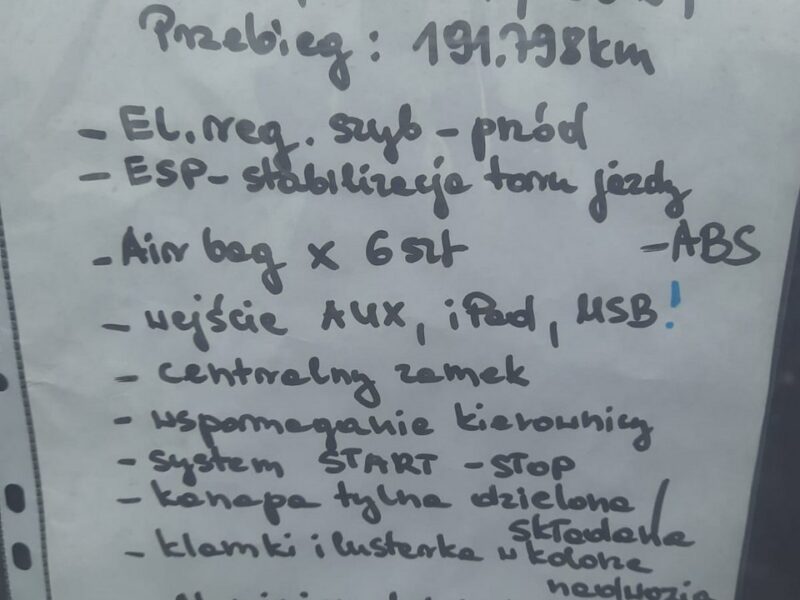 Przebieg: 191.798km
- El. reg. szyb - przód
- ESP - stabilizacja toru jazdy
- Air bag x 6 szt - ABS
- wejście AUX, iPad, USB!
- centralny zamek
- wspomaganie kierownicy
- system START - STOP
- kanapa tylna dzielona /
składana
- klamki i lusterka w kolorze
nadwozia